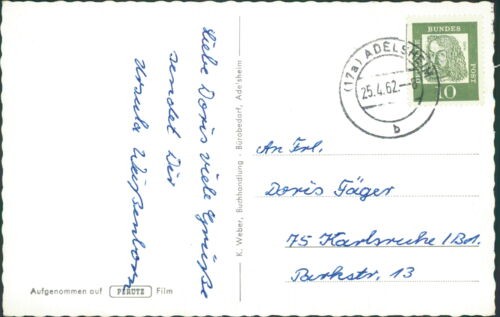 Liebe Doris viele Grüße
sendet Dir
Ursula Weißenborn
Aufgenommen auf PERUTZ Film
K. Weber, Buchhandlung - Bürobedarf, Adelsheim
(17a) ADELSHEIM
25.4.62.-8
b
BUNDES
POST
10
An Frl.
Doris Jäger
75 Karlsruhe/Bd.
Parkstr. 13